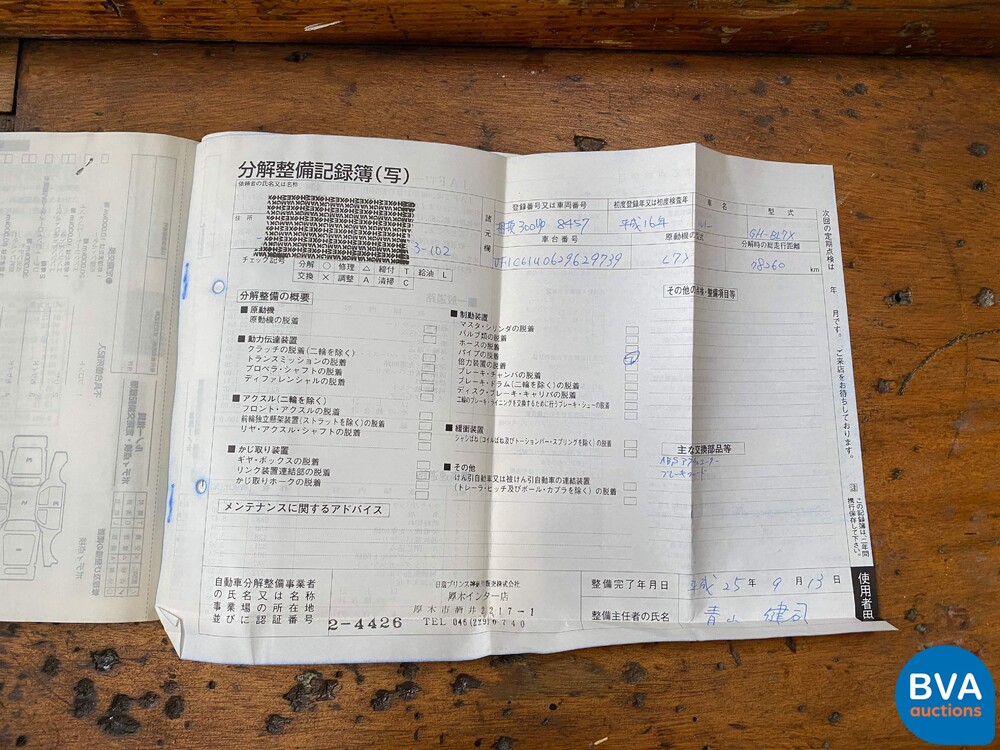 分解整備記録簿(写)
依頼者の氏名又は名称
住所
3-102
登録番号又は車両番号
初度登録年又は初度検査年
車名
型式
相模300ゆ 8457
平成16年
GH-BL7X
車台番号
原動機の型式
分解時の総走行距離
L7X
78260 km
チェック記号
分解 ○ 修理 △ 締付 T 給油 L
交換 × 調整 A 清掃 C
分解整備の概要
■ 原動機
原動機の脱着
■ 動力伝達装置
クラッチの脱着(二輪を除く)
トランスミッションの脱着
プロペラ・シャフトの脱着
ディファレンシャルの脱着
■ アクスル(二輪を除く)
フロント・アクスルの脱着
前輪独立懸架装置(ストラットを除く)の脱着
リヤ・アクスル・シャフトの脱着
■ かじ取り装置
ギヤ・ボックスの脱着
リンク装置連結部の脱着
かじ取りホークの脱着
■ 制動装置
マスタ・シリンダの脱着
バルブ類の脱着
ホースの脱着
パイプの脱着
倍力装置の脱着
ブレーキ・チャンバの脱着
ブレーキ・ドラム(二輪を除く)の脱着
ディスク・ブレーキ・キャリパの脱着
二輪のブレーキ・ライニングを交換するために行うブレーキ・シューの脱着
■ 緩衝装置
シャシばね(コイルばね及びトーションバー・スプリングを除く)の脱着
■ その他
けん引自動車又は被けん引自動車の連結装置
(トレーラ・ヒッチ及びボール・カプラを除く)の脱着
その他の点検・整備項目等
主な交換部品等
ABSアクチュエーター
ブレーキフルード
メンテナンスに関するアドバイス
自動車分解整備事業者
の氏名又は名称
事業場の所在地
並びに認証番号
2-4426
日産プリンス神奈川販売株式会社
厚木インター店
厚木市酒井2217-1
整備完了年月日
平成 25 年 9 月 13 日
整備主任者の氏名
青山 健司
次回の定期点検は 年 月です。ご来店をお待ちしております。
注 この記録簿は二年間
携行保存して下さい。
使用者用
BVA
auctions